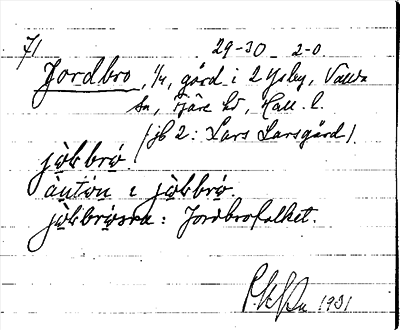 71 29-30 2-0.
Jordbro, 1/4, gård i 2 Ysby, Vallda
sn, Fjäre hd, Hall. l.
(jb 2: Lars Larsgård).
jo̱ᶅbro̱.
anton i jo̱ᶅbro̱.
jo̱ᶅbrosra: Jordbrofolket.
1931